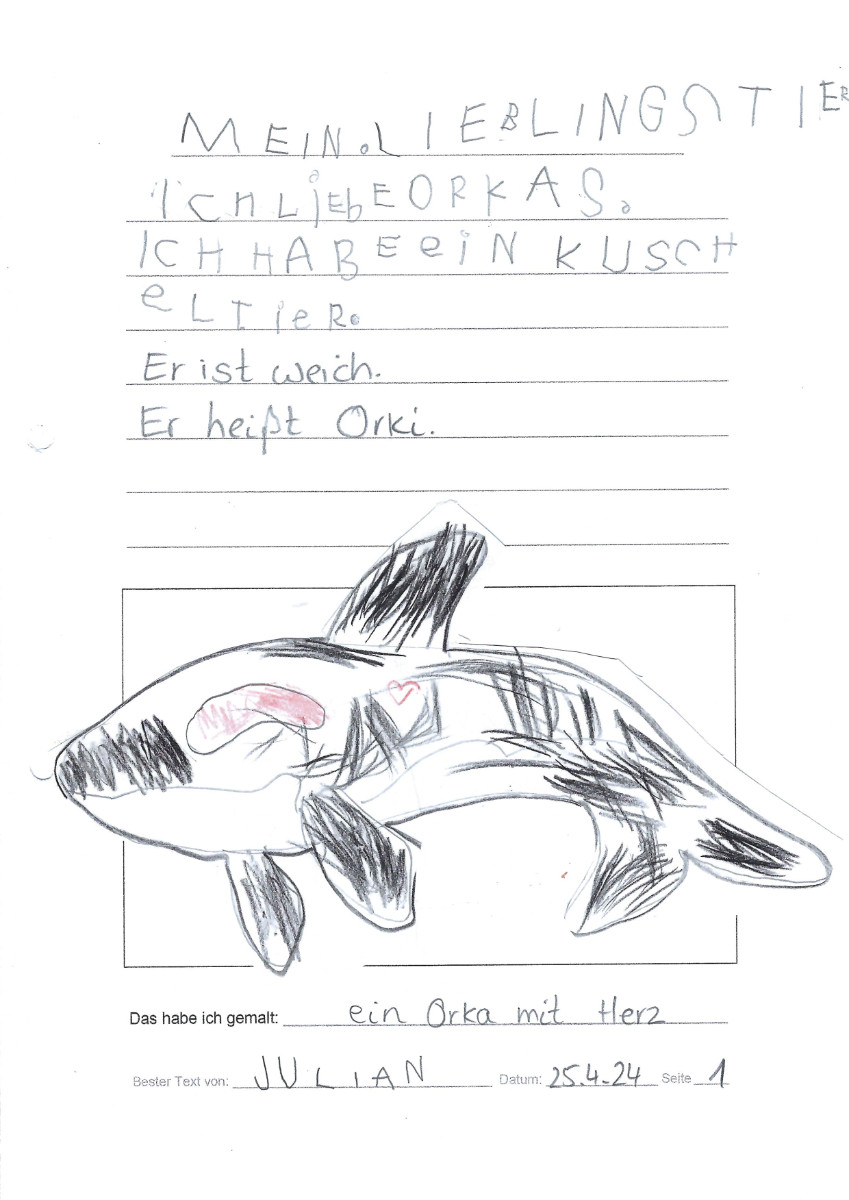 MEIN.LIEBLINGSTIER
ICH LIEBE ORKAS.
ICH HABE EeiN KUSCH
eLTieR.
Er ist weich.
Er heißt Orki.
Das habe ich gemalt: ein Orka mit Herz
Bester Text von: JULIAN Datum: 25.4.24 Seite 1